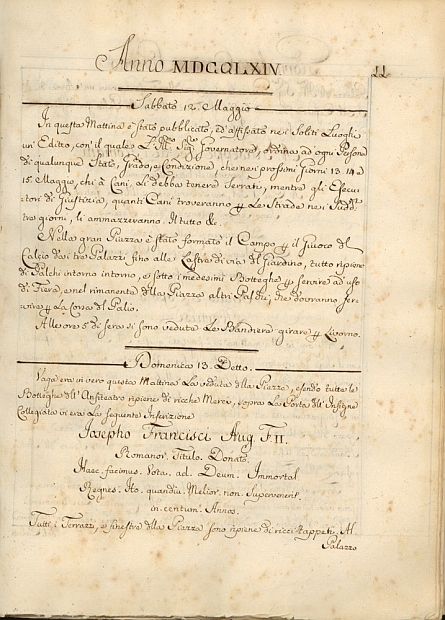 Anno MDCCLXIV. 11
Sabbato 12. Maggio
In questa Mattina è stato pubblicato, ed affissato nei Soliti Luoghi,
un' Editto, con il quale L' Sig. Governatore, ordina ad ogni Persona
di qualunque Stato, Grado, e Condizione, che nei prossimi Giorni 13. 14. a
15. Maggio, chi à Cani, li debba tenere Serrati, mentre gli Esecu-
tori di Giustizia, quanti Cani troveranno p. Le Strade nei Sudd.
tre giorni, li ammazzeranno. Il tutto &.
Nella gran Piazza è stato formato il Campo p. il Giuoco del
Calcio dai tre Palazzi fino alle Lastre di via del Giardino, tutto ripieno
di Palchi intorno intorno, e sotto i medesimi Botteghe p. servire ad uso
di Fiera, e nel rimanente della Piazza altri Palchi, che dovranno ser-
vire p. La Corsa del Palio.
Alle ore 5 di sera si sono vedute Le Bandiere girare p. Livorno.
Domenica 13. Detto.
Vaga era in vero questa Mattina La veduta della Piazza, essendo tutte le
Botteghe dell' Anfiteatro ripiene di ricche Merci, sopra La Porta dell' Insigne
Collegiata vi era La seguente Inscrizione
Josepho Francisci Aug. F. II.
Romanor. Titulo. Donato.
Haec. facimus. Vota. ad. Deum. Immortal
Regnes. Ito. quandiu. Melior. non. Supervenerit.
in. centum. Annos.
Tutti i Terrazzi, e finestre della Piazza sono ripiene di ricci Tappeti, Al
Palazzo